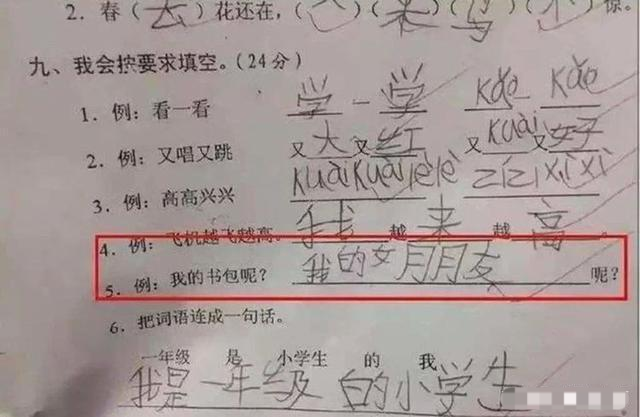 2. 春（去）花还在，（人）（来）（鸟）（不）惊。
九、我会按要求填空。（24分）
1. 例：看一看 学一学 kǎo kǎo
2. 例：又唱又跳 又大又红 又kuài又好
3. 例：高高兴兴 kuàikuàilèlè zǐzǐxìxì
4. 例：飞机越飞越高。 我越来越高。
5. 例：我的书包呢？ 我的女月月友呢？
6. 把词语连成一句话。
一年级 是 小学生 的 我
我是一年级白的小学生